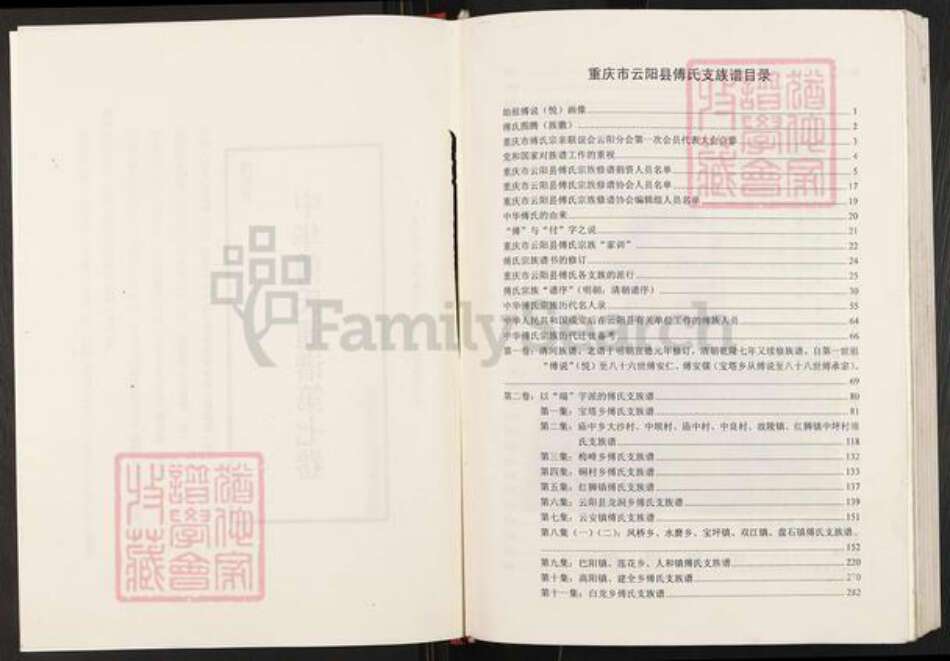 重庆市云阳县傅氏支族谱目录
始祖傅说（悦）画像 1
傅氏图腾（族徽） 2
重庆市傅氏宗亲联谊会云阳分会第一次会员代表大会合影 3
党和国家对族谱工作的重视 4
重庆市云阳县傅氏宗族修谱捐资人员名单 5
重庆市云阳县傅氏宗族修谱协会人员名单 17
重庆市云阳县傅氏宗族修谱协会编辑组人员名单 19
中华傅氏的由来 20
“傅”与“付”字之说 21
重庆市云阳县傅氏宗族“家训” 22
傅氏宗族谱书的修订 24
重庆市云阳县傅氏各支族的派行 25
傅氏宗族“谱序”（明朝，清朝谱序） 30
中华傅氏宗族历代名人录 55
中华人民共和国成立后在云阳县有关单位工作的傅族人员 64
中华傅氏宗族历代迁徙备考 66
第一卷：清河族谱，老谱于明朝宣德元年修订，清朝乾隆七年又续修族谱，自第一世祖
“傅说”（悦）至八十六世傅安仁、傅安儒（宝塔乡从傅说至八十八世傅承宗）。
69
第二卷：以“端”字派的傅氏支族谱 80
第一集：宝塔乡傅氏支族谱 81
第二集：庙中乡大沙村、中坝村、庙中村、中良村、故陵镇、红狮镇中坪村傅
氏支族谱 118
第三集：栖峰乡傅氏支族谱 132
第四集：桐村乡傅氏支族谱 133
第五集：红狮镇傅氏支族谱 137
第六集：云阳县龙洞乡傅氏支族谱 139
第七集：云安镇傅氏支族谱 151
第八集（一）（二）：凤桥乡、水磨乡、宝坪镇、双江镇、盘石镇傅氏支族谱
152
第九集：巴阳镇、莲花乡、人和镇傅氏支族谱 220
第十集：高阳镇、建全乡傅氏支族谱 270
第十一集：白龙乡傅氏支族谱 282
FamilySearch
猶他家
譜學會
收藏
猶他家
譜學會
收藏